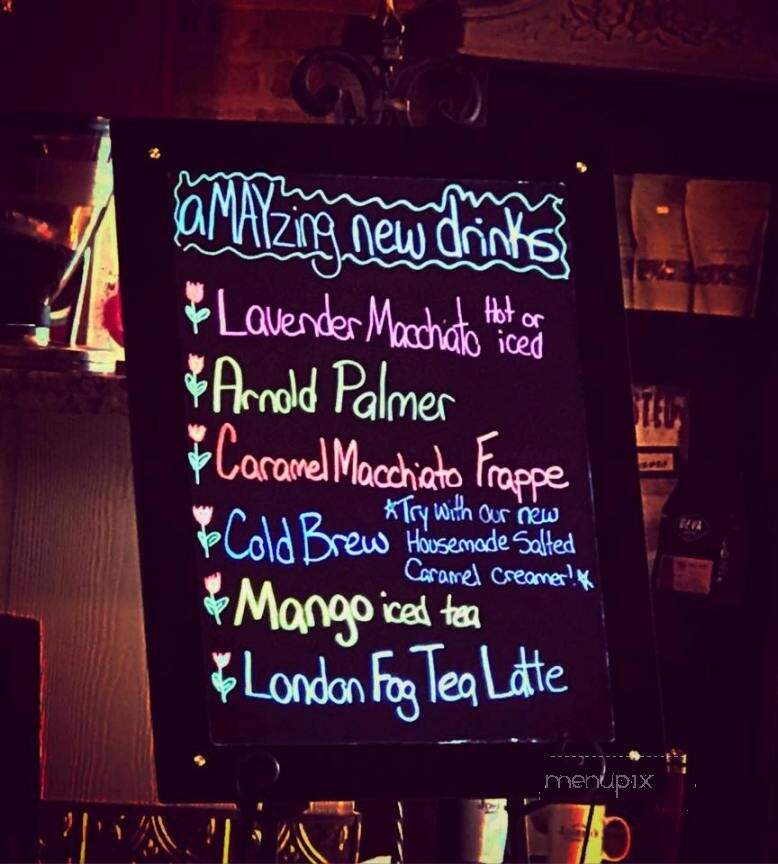 aMAYzing new drinks
Lavender Macchiato Hot or iced
Arnold Palmer
Caramel Macchiato Frappe
Cold Brew *Try with our new
Housemade Salted
Caramel creamer!*
Mango iced tea
London Fog Tea Latte
menupix